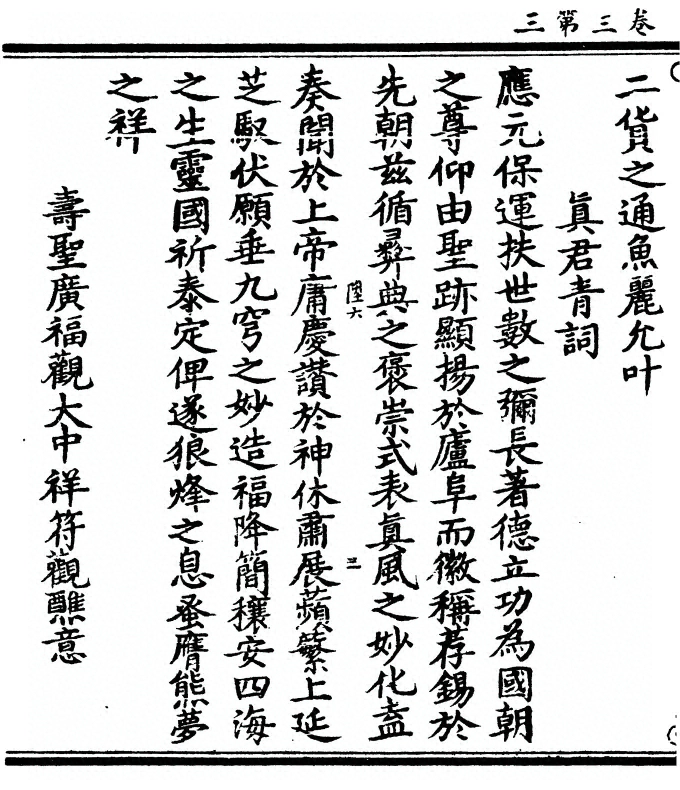 卷三第三
二貨之通魚麗允叶
真君青詞
應元保運扶世數之彌長著德立功為國朝
之尊仰由聖跡顯揚於廬阜而徽稱荐錫於
先朝茲循彞典之褒崇式表真風之妙化盍
陸六
三
奏聞於上帝庸慶讚於神休肅展蘋蘩上延
芝馭伏願垂九穹之妙造福降簡穰安四海
之生靈國祈泰定俾遂狼烽之息蚤膺熊夢
之祥
壽聖廣福觀大中祥符觀醮意